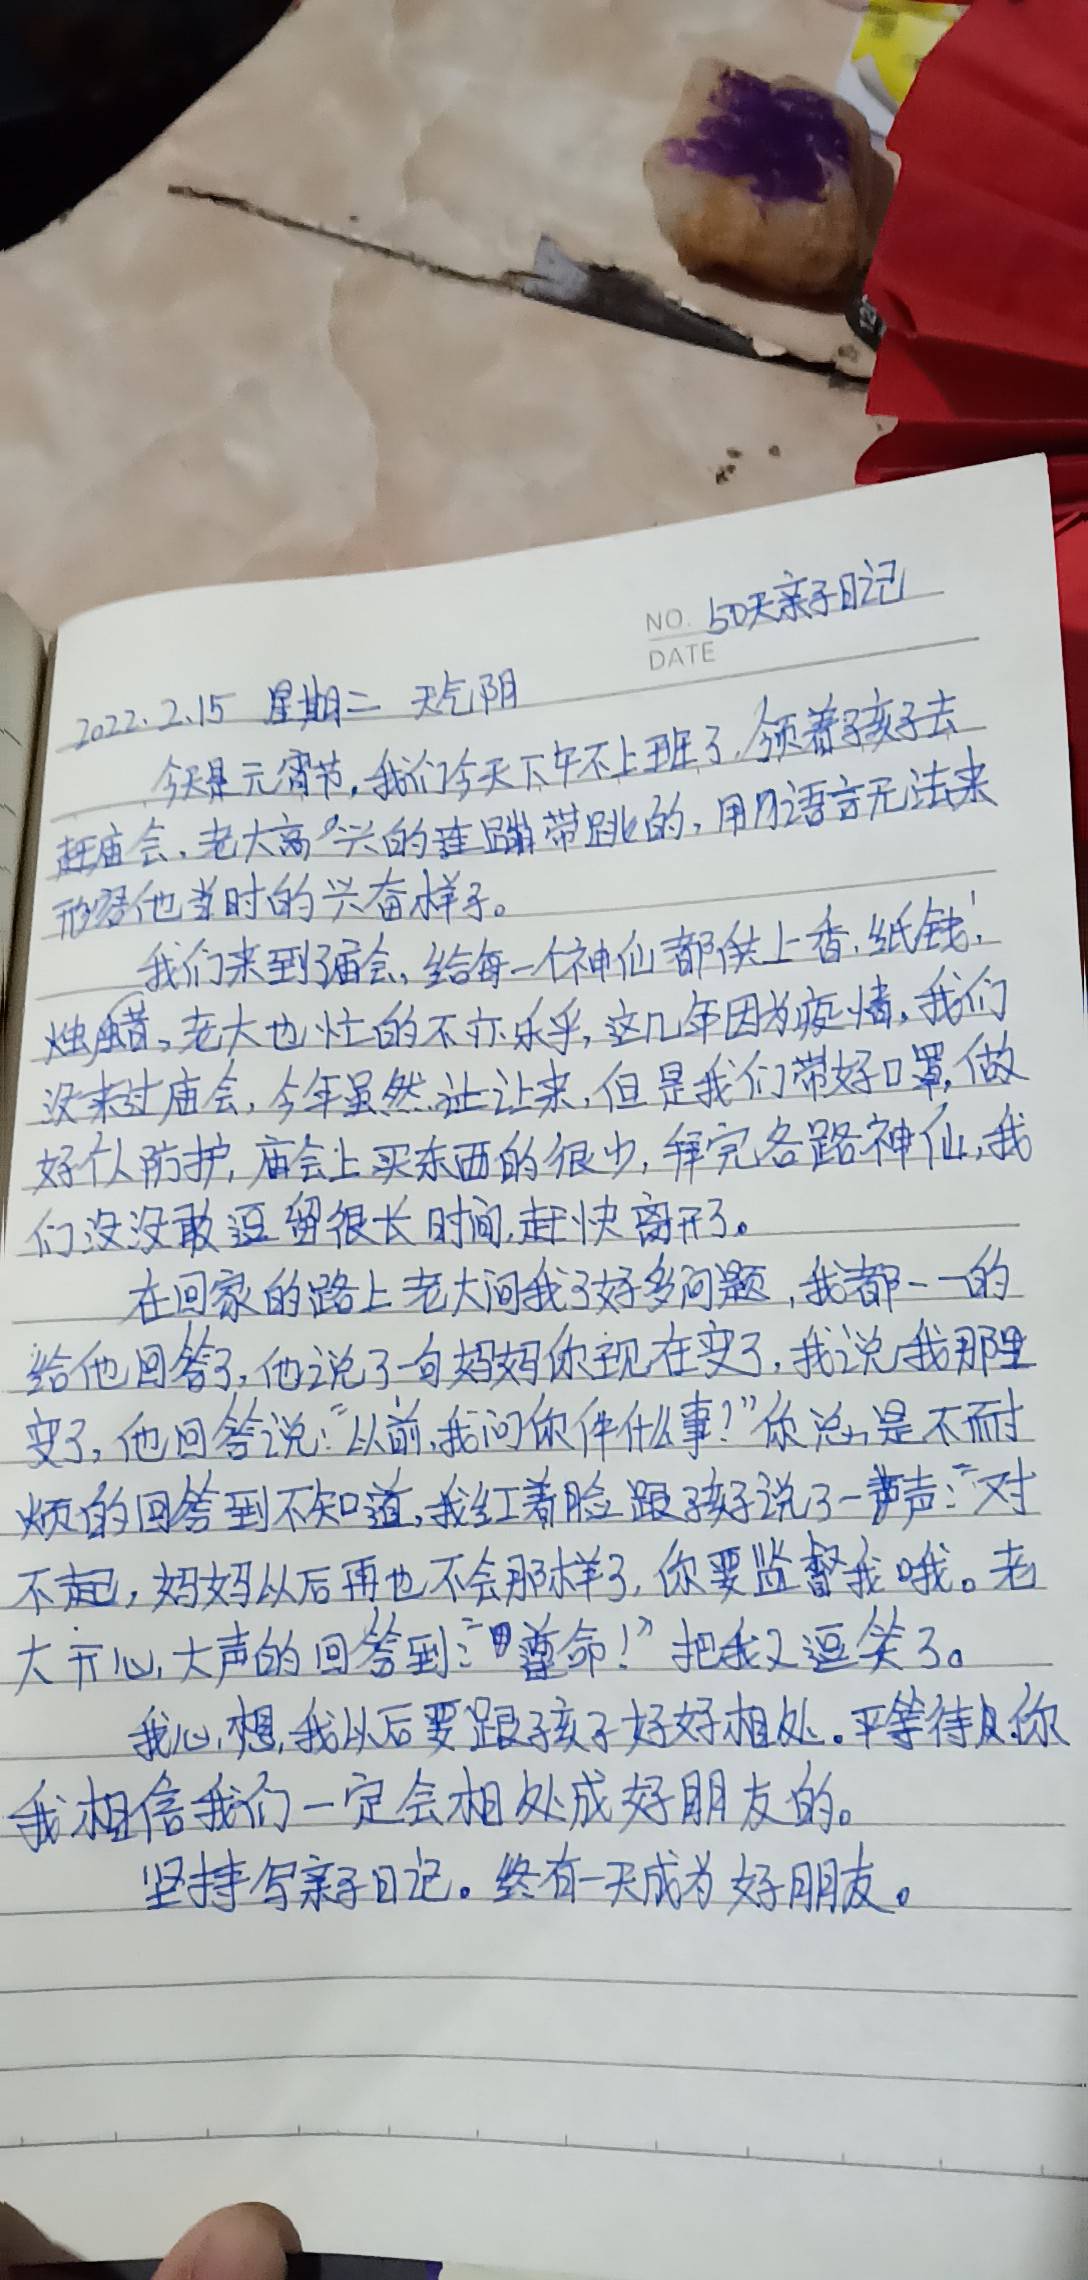 NO. 50天亲子日记
DATE
2022.2.15 星期二 天气阴
今天是元宵节,我们今天下午不上班了,领着孩子去
赶庙会,老大高兴的连蹦带跳的,用语言无法来
形容他当时的兴奋样子。
我们来到了庙会,给每一个神仙都供上香,纸钱,
烛蜡。老大也忙的不亦乐乎,这几年因为疫情,我们
没来过庙会,今年虽然让来,但是我们带好口罩,做
好个人防护,庙会上买东西的很少,拜完各路神仙,我
们没没敢逗留很长时间,赶快离开了。
在回家的路上老大问我了好多问题,我都一一的
给他回答了,他说了一句妈妈你现在变了,我说我那里
变了,他回答说:“以前,我问你件什么事?”你总是不耐
烦的回答到不知道,我红着脸跟孩子说了一声:“对
不起,妈妈以后再也不会那样了,你要监督我哦。老
大开心,大声的回答到:“遵命!”把我又逗笑了。
我心想,我以后要跟孩子好好相处。平等待你
我相信我们一定会相处成好朋友的。
坚持写亲子日记。终有一天成为好朋友。